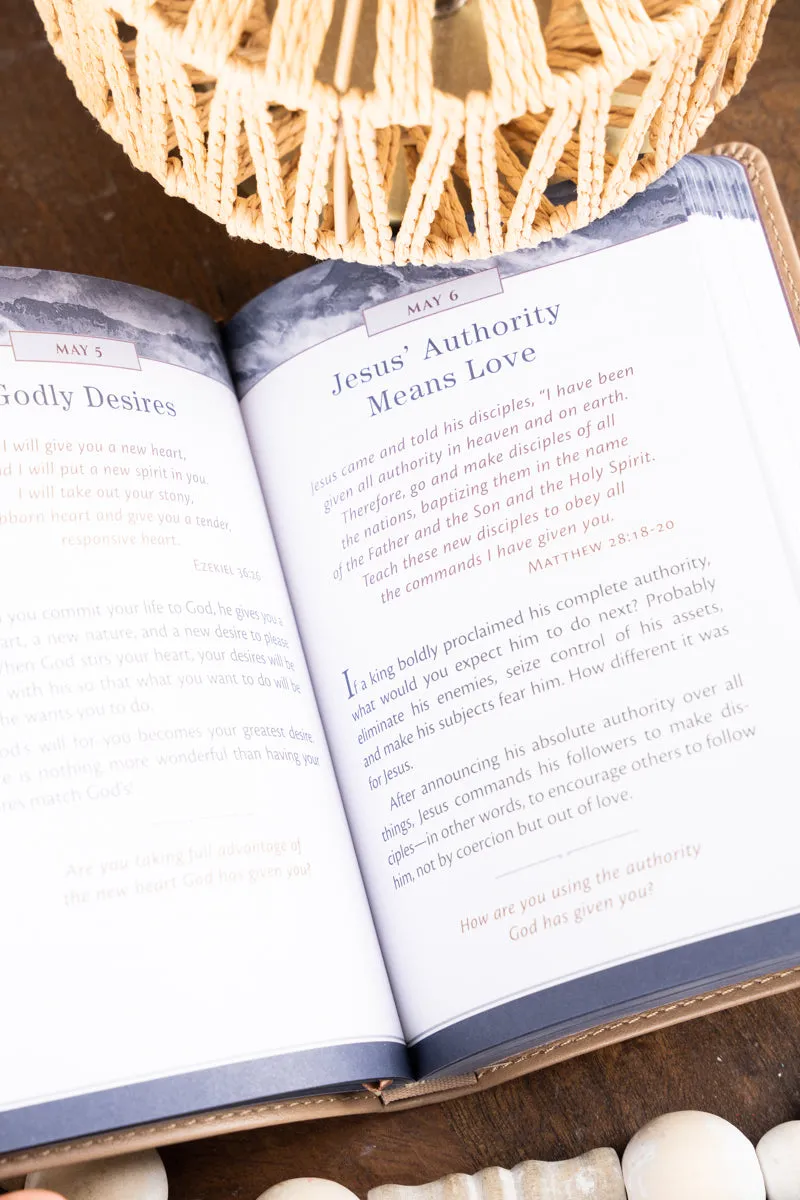 MAY 5
Godly Desires
I will give you a new heart,
I will put a new spirit in you.
I will take out your stony,
heart and give you a tender,
responsive heart.
EZEKIEL 36:26
you commit your life to God, he gives you a
a new nature, and a new desire to please
When God stirs your heart, your desires will be
with his so that what you want to do will be
he wants you to do.
will for you becomes your greatest desire,
is nothing more wonderful than having your
match God's!
Are you taking full advantage of
the new heart God has given you?
MAY 6
Jesus' Authority
Means Love
Jesus came and told his disciples, "I have been
given all authority in heaven and on earth.
Therefore, go and make disciples of all
the nations, baptizing them in the name
of the Father and the Son and the Holy Spirit.
Teach these new disciples to obey all
the commands I have given you.
MATTHEW 28:18-20
If a king boldly proclaimed his complete authority,
what would you expect him to do next? Probably
eliminate his enemies, seize control of his assets,
and make his subjects fear him. How different it was
for Jesus.
After announcing his absolute authority over all
things, Jesus commands his followers to make dis-
ciples—in other words, to encourage others to follow
him, not by coercion but out of love.
How are you using the authority
God has given you?